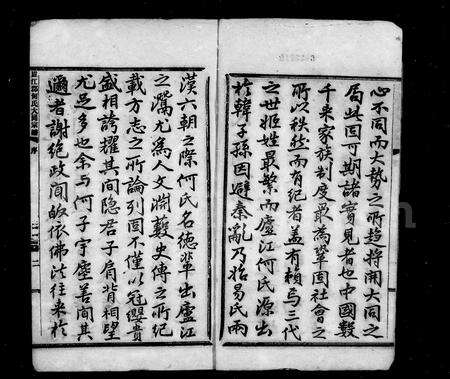 心不同而大勢之所趨將開大同之
局此固可期諸實見者也中國數
千來家族制度最為鞏固社會之
所以秩然而有紀者蓋有賴焉三代
之世姬姓最繁而廬江何氏源出
於韓子孫因避秦亂乃始易氏兩
漢六朝之際何氏名德輩出廬江
之灊尤為人文淵藪史傳之所紀
載方志之所論列固不僅以冠纓貴
盛相誇耀其間隱君子肩背相望
尤足多也余与何子宇塵善間其
適者謝絕政聞皈依佛法往來於
廬江郡何氏大同宗譜
序